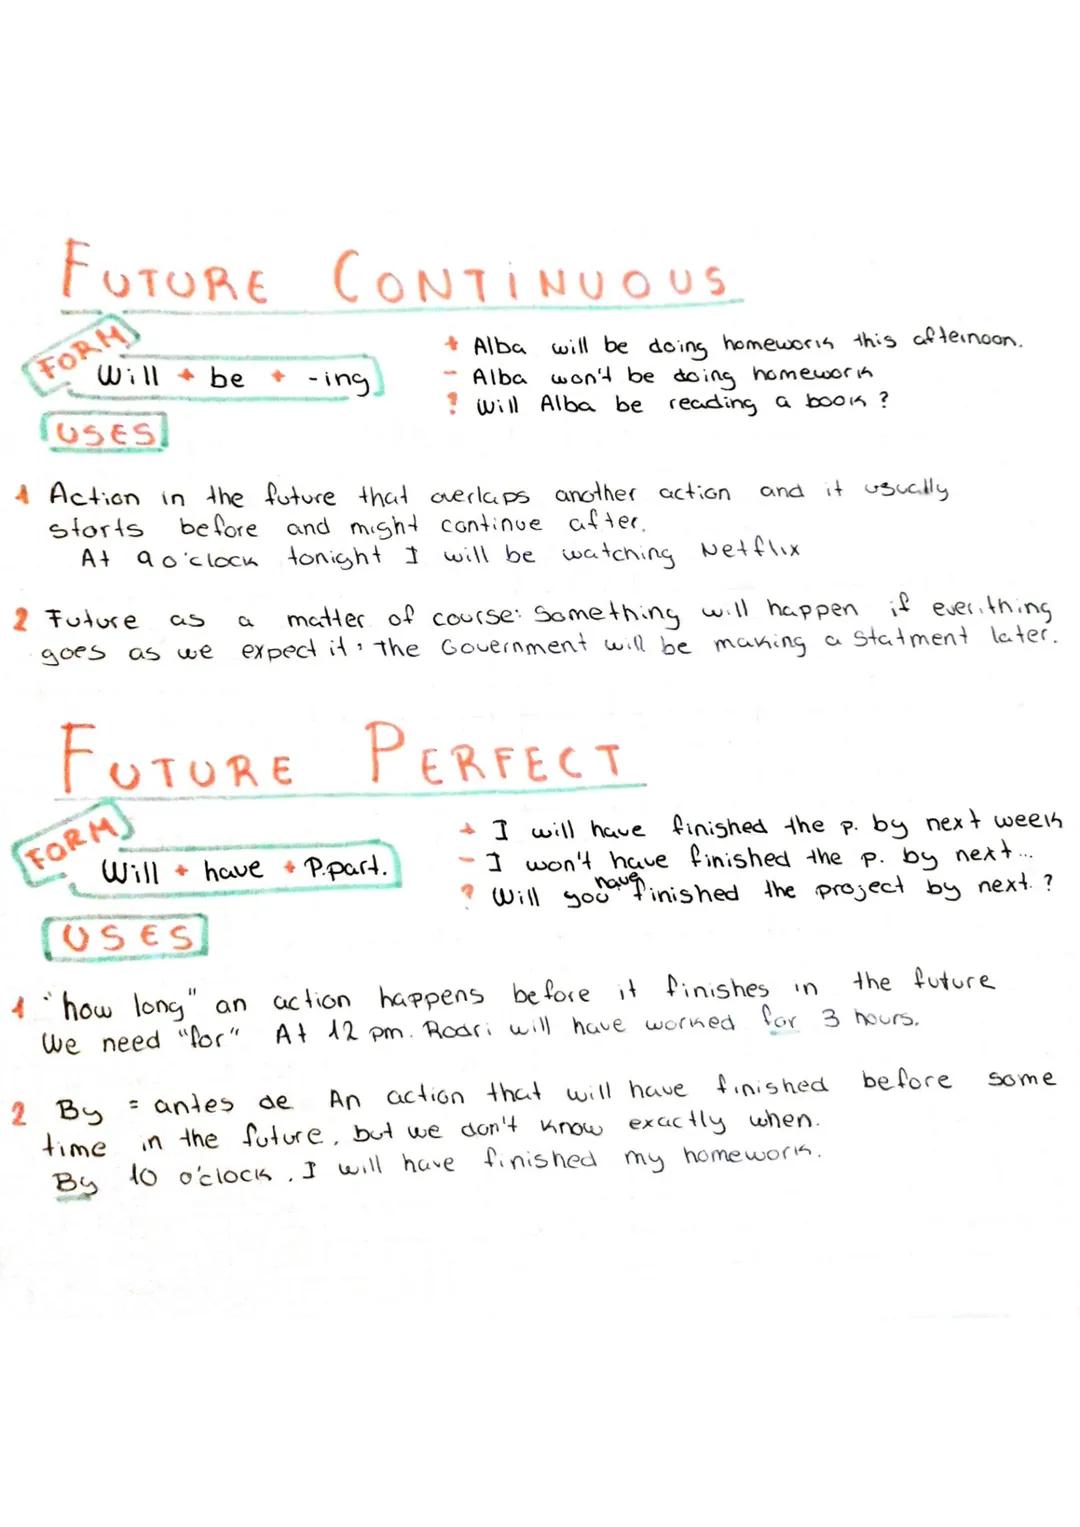 FUTURE CONTINUOUS
FORM
Will + be + -ing
+ Alba will be doing homework this afternoon.
- Alba won't be doing homework
? Will Alba be reading a book?
USES
1 Action in the future that overlaps another action and it usually
starts before and might continue after.
At 9 o'clock tonight I will be watching Netflix
2 Future as a matter of course: Something will happen if everithing
goes as we expect it: the Government will be making a statment later.
FUTURE PERFECT
FORM
Will + have + P.part.
+ I will have finished the p. by next week
- I won't have finished the p. by next...
? Will you have finished the project by next.?
USES
1 "how long" an action happens before it finishes in the future
We need "for" At 12 pm. Rodri will have worked for 3 hours.
2 By = antes de An action that will have finished before some
time in the future, but we don't know exactly when.
By 10 o'clock, I will have finished my homework.